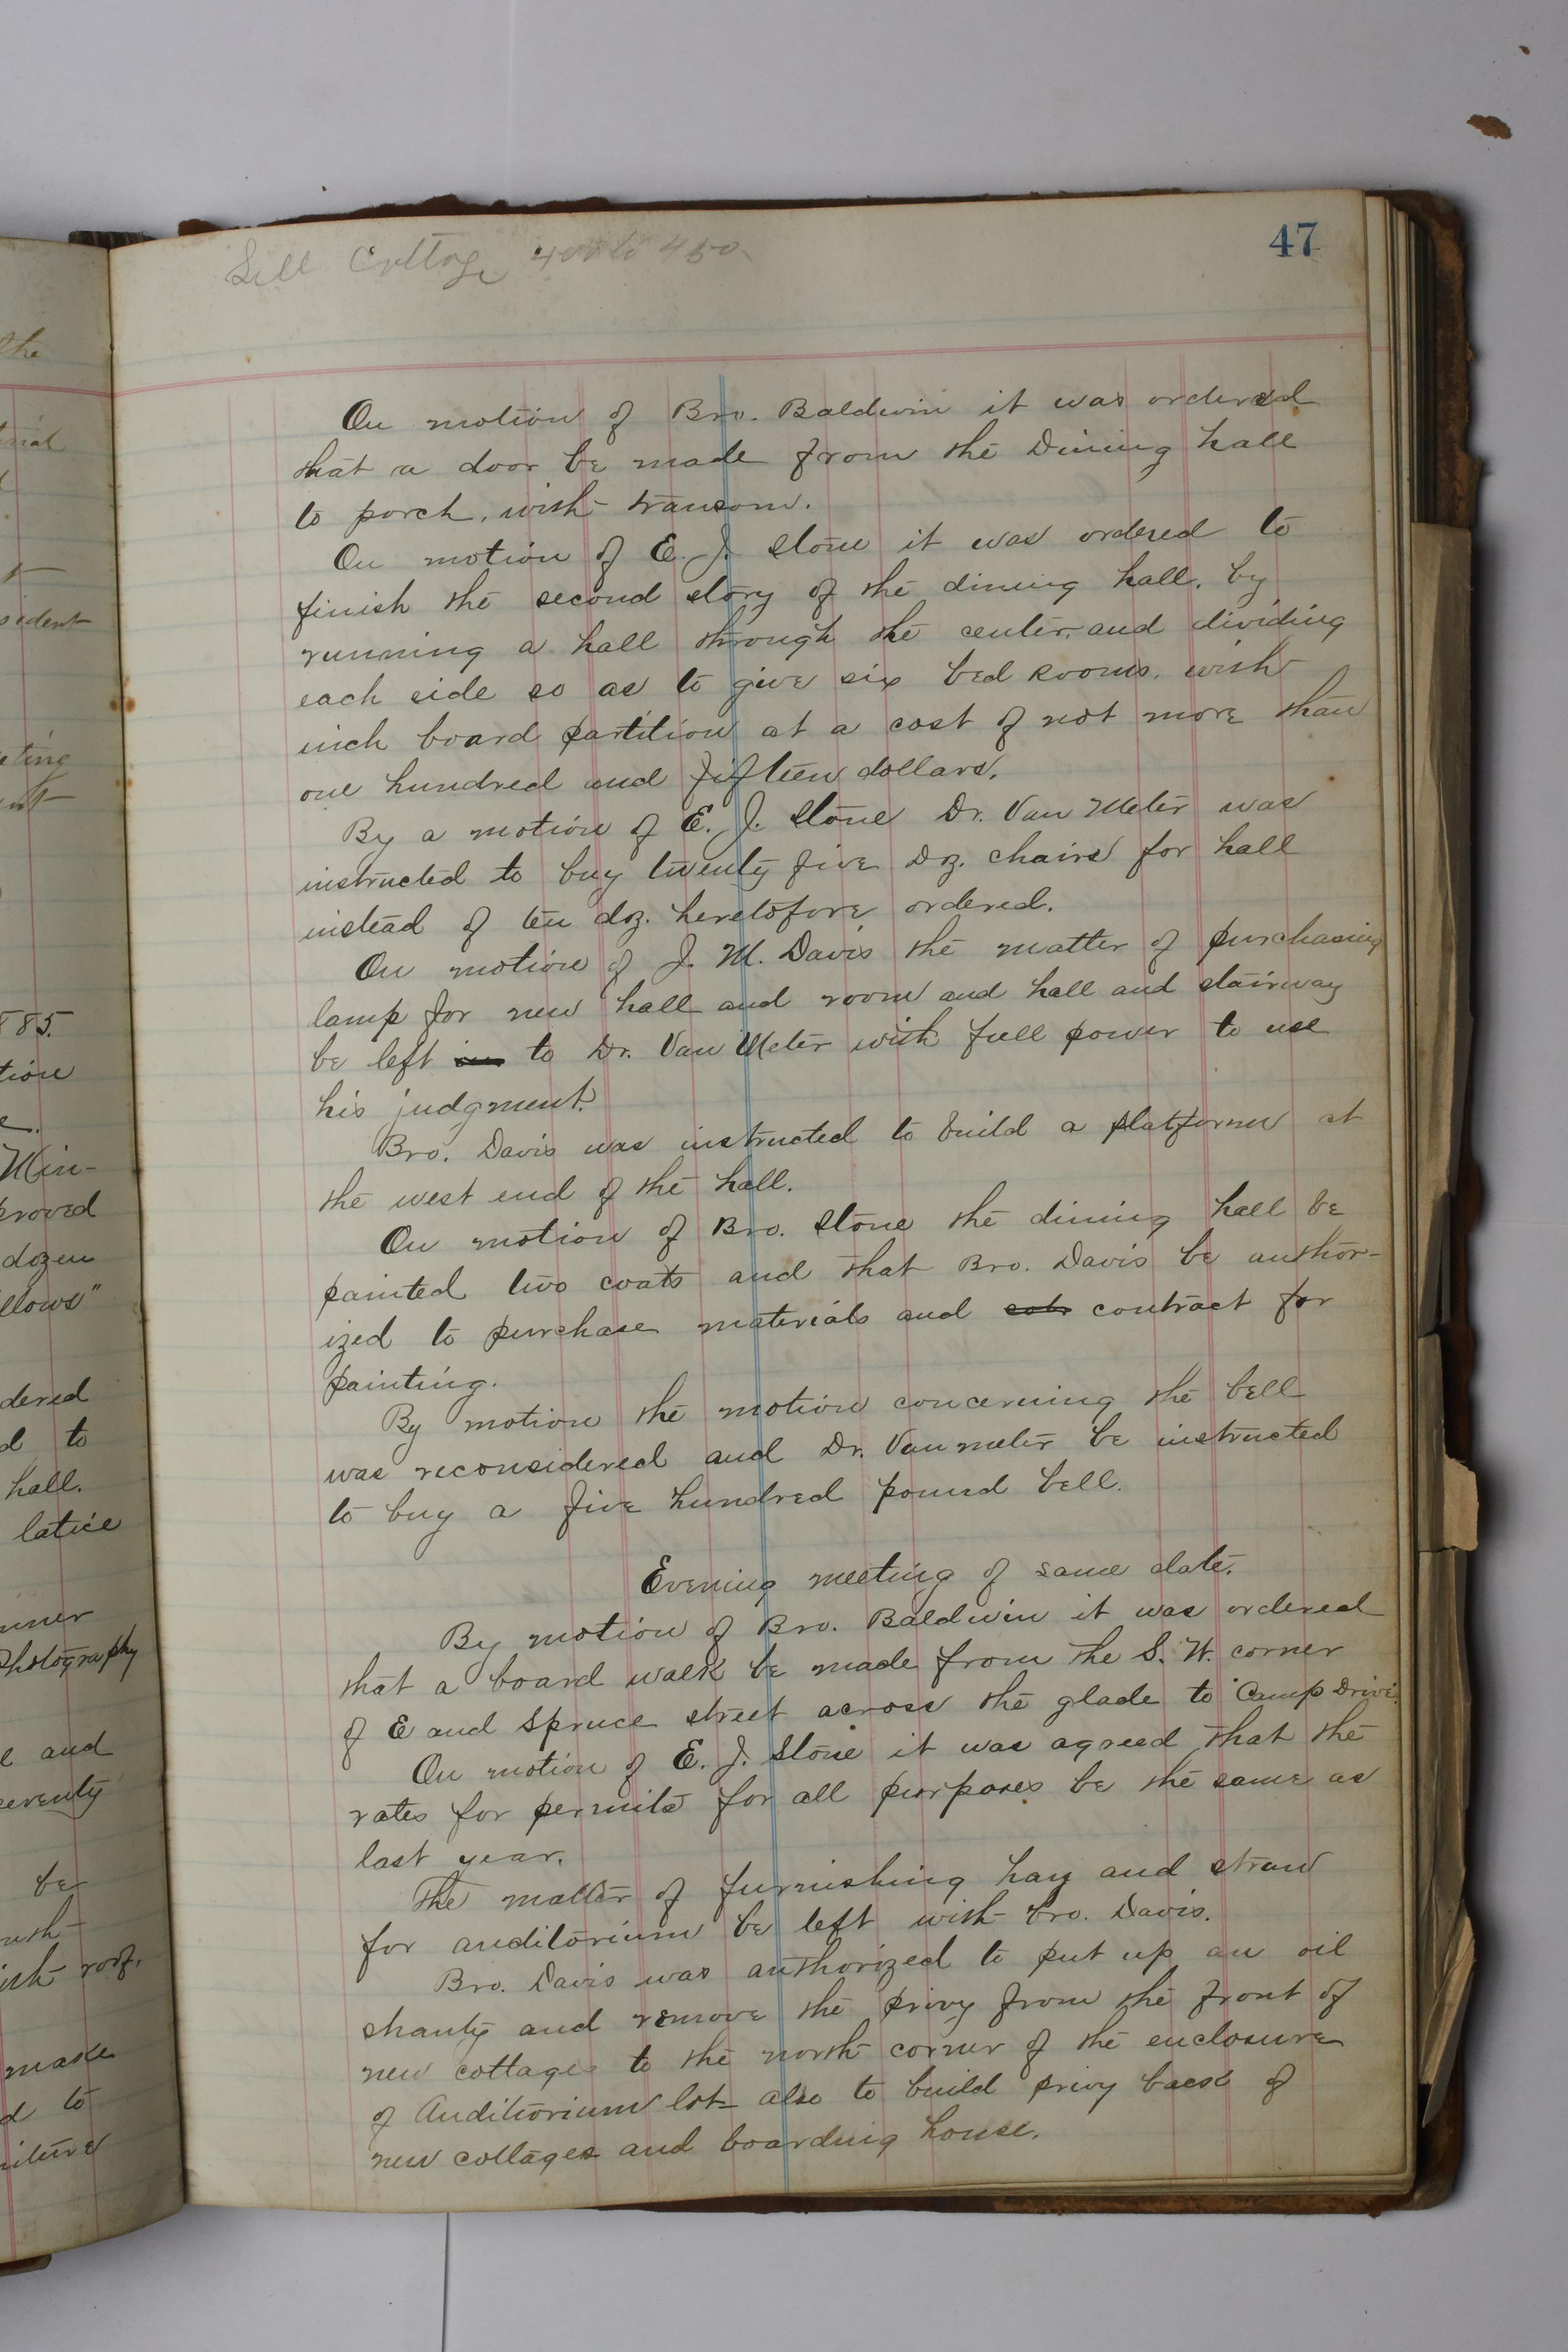 the
sident
eting
885.
tion
Min-
proved
dozen
llows"
dered
d to
hall.
latice
Photography
e and
seventy
be
ish roof.
make
d to
47
Sill Cottage 400 to 450
On motion of Bro. Baldwin it was ordered
that a door be made from the Dining hall
to porch, with transom.
On motion of E. J. Stone it was ordered to
finish the second story of the dining hall, by
running a hall through the center, and dividing
each side so as to give six bed Rooms, with
inch board partition at a cost of not more than
one hundred and fifteen dollars.
By a motion of E. J. Stone Dr. Van Meter was
instructed to buy twenty five Doz. chairs for hall
instead of ten doz. heretofore ordered.
On motion of J. M. Davis the matter of purchasing
lamp for new hall and room and hall and stairway
be left in to Dr. Van Meter with full power to use
his judgment.
Bro. Davis was instructed to build a platform at
the west end of the hall.
On motion of Bro. Stone the dining hall be
painted two coats and that Bro. Davis be author-
ized to purchase materials and contract for
painting.
By motion the motion concerning the bell
was reconsidered and Dr. Vanmeter be instructed
to buy a five hundred pound bell.
Evening meeting of same date.
By motion of Bro. Baldwin it was ordered
that a board walk be made from the S. W. corner
of E and Spruce street across the glade to Camp Drive.
On motion of E. J. Stone it was agreed that the
rates for permits for all purposes be the same as
last year.
The matter of furnishing hay and straw
for auditorium be left with bro. Davis.
Bro. Davis was authorized to put up an oil
shanty and remove the privy from the front of
new cottages to the north corner of the enclosure
of Auditorium lot also to build privy back of
new cottages and boarding house.